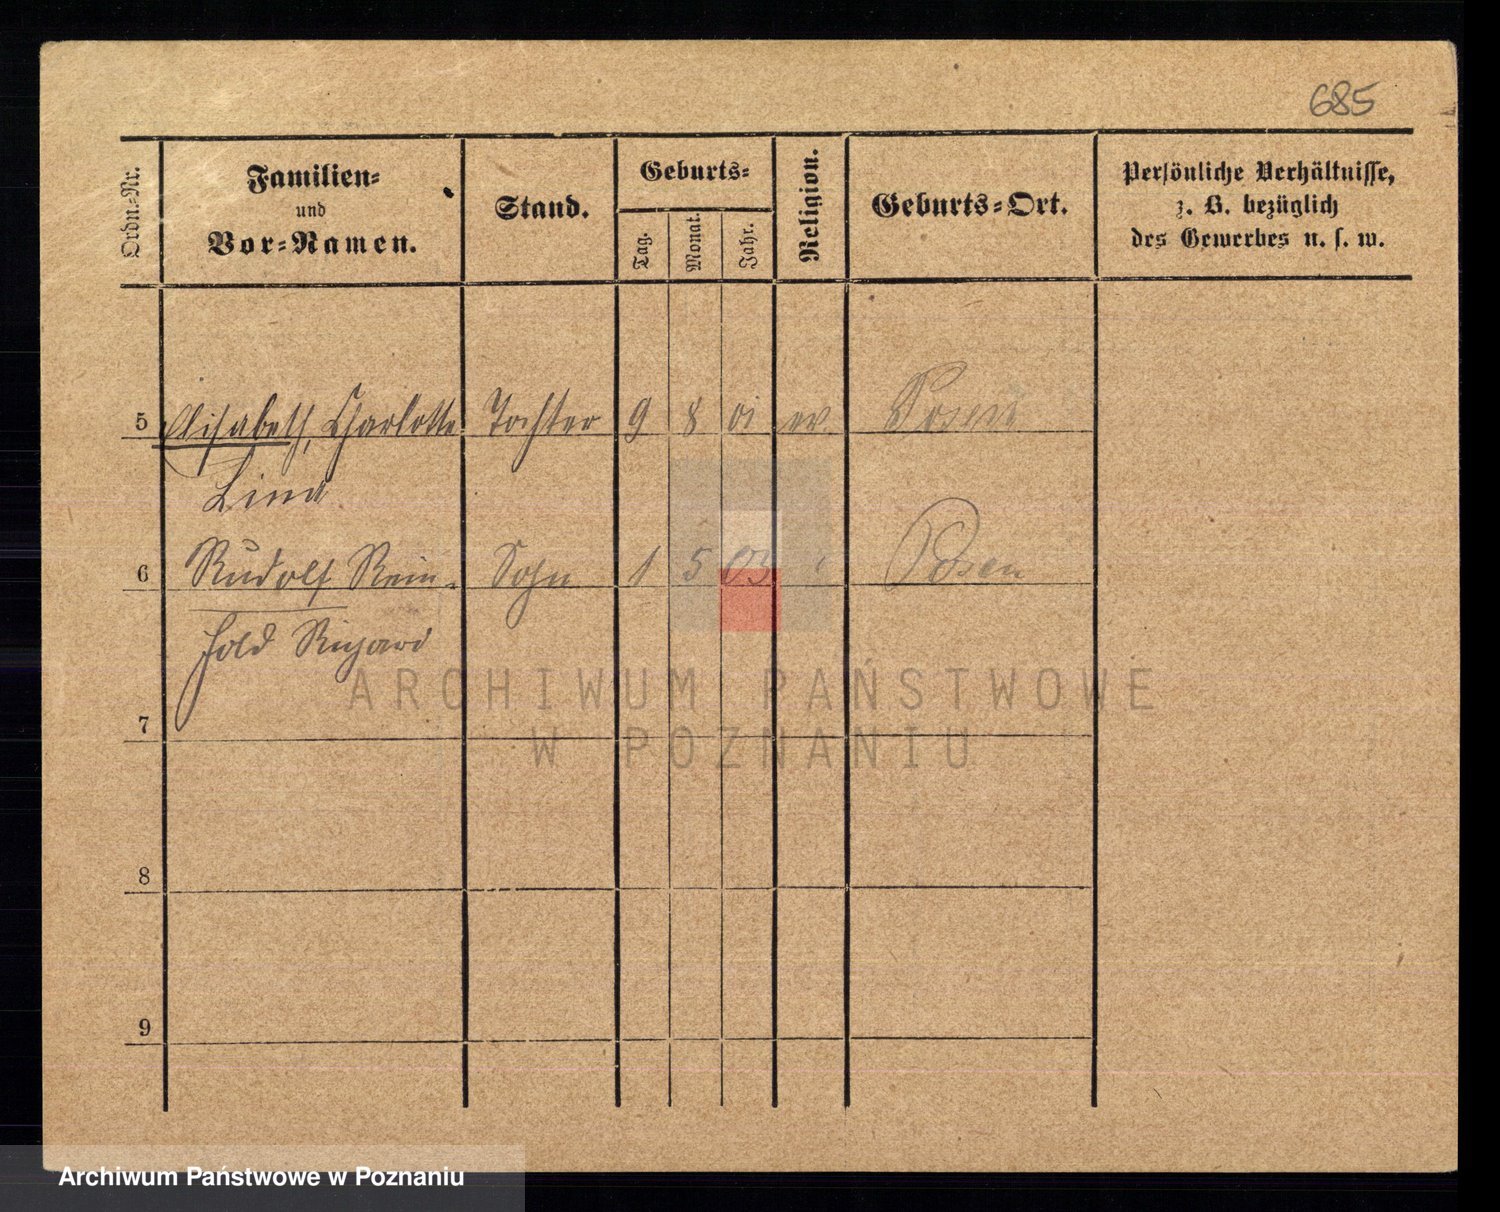 685
Ordn.-Nr.
Familien-
und
Vor-Namen.
Stand.
Geburts-
Tag.
Monat.
Jahr.
Religion.
Geburts-Ort.
Persönliche Verhältnisse,
z. B. bezüglich
des Gewerbes u. s. w.
5 Elisabeth, Charlotte Tochter 9 8 01 ev. Posen
Lina
6 Rudolf Rein- Sohn 1 5 03 Posen
hold Richard
7
8
9
ARCHIWUM PAŃSTWOWE
W POZNANIU
Archiwum Państwowe w Poznaniu